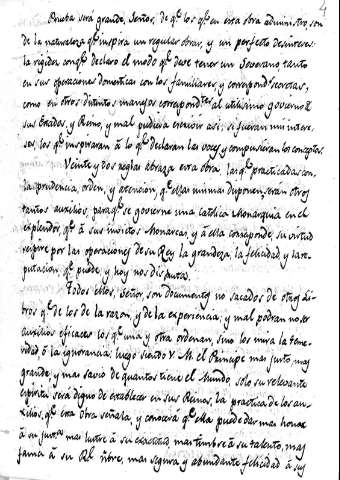 4
Prueba será grande, Señor, de q.e los q.e en esta obra administro, son
de la naturaleza q.e inspira un regular obrar, y un perfecto desinteres.
la rigidez con q.e declaro el modo q.e debe tener un Soverano tanto
en sus operaciones domesticas con los familiares, y correspond.s secretas,
como en otros distintos manejos correspond.tes al utilisimo govierno de
sus Estados, y Reino, y mal pudiera escrivir asi, si fueran mis intere
ses, los q.e inspiraran á lo q.e declaran las voces y compusieran los conceptos.
Veinte y dos reglas abraza esta obra, las q.e practicadas con
la prudencia, orden, y atencion, q.e ellas mismas disponen, serán otros
tantos auxilios, para q.e se govierne una Catolica Monarquia en el
explendor, q.e á sus invictos Monarcas, y á ella corresponde, su virtud
respire por las operaciones de su Rey la grandeza, la felicidad y la re-
putacion, q.e puede, y hoy nos disputa.
Todos ellos, Señor, son documentos no sacados de otros Li-
bros q.e de los de la razon, y de la experiencia; y mal podran no ser
auxilios eficaces los q.e una y otra ordenan, sino los mira la teme-
ridad ó la ignorancia: luego siendo V. M. el Principe mas justo, mas
grande, y mas savio de quantos tiene el Mundo, solo su relevante
espiritu será digno de establecer en sus Reinos, la practica de los au-
xilios, q.e esta obra señala, y conocerá q.e ella puede dar mas honor
á su justa, mas lustre á su exactitud, mas lumbre á su talento, mas
fama á su R.l nombre, mas segura y abundante felicidad á sus